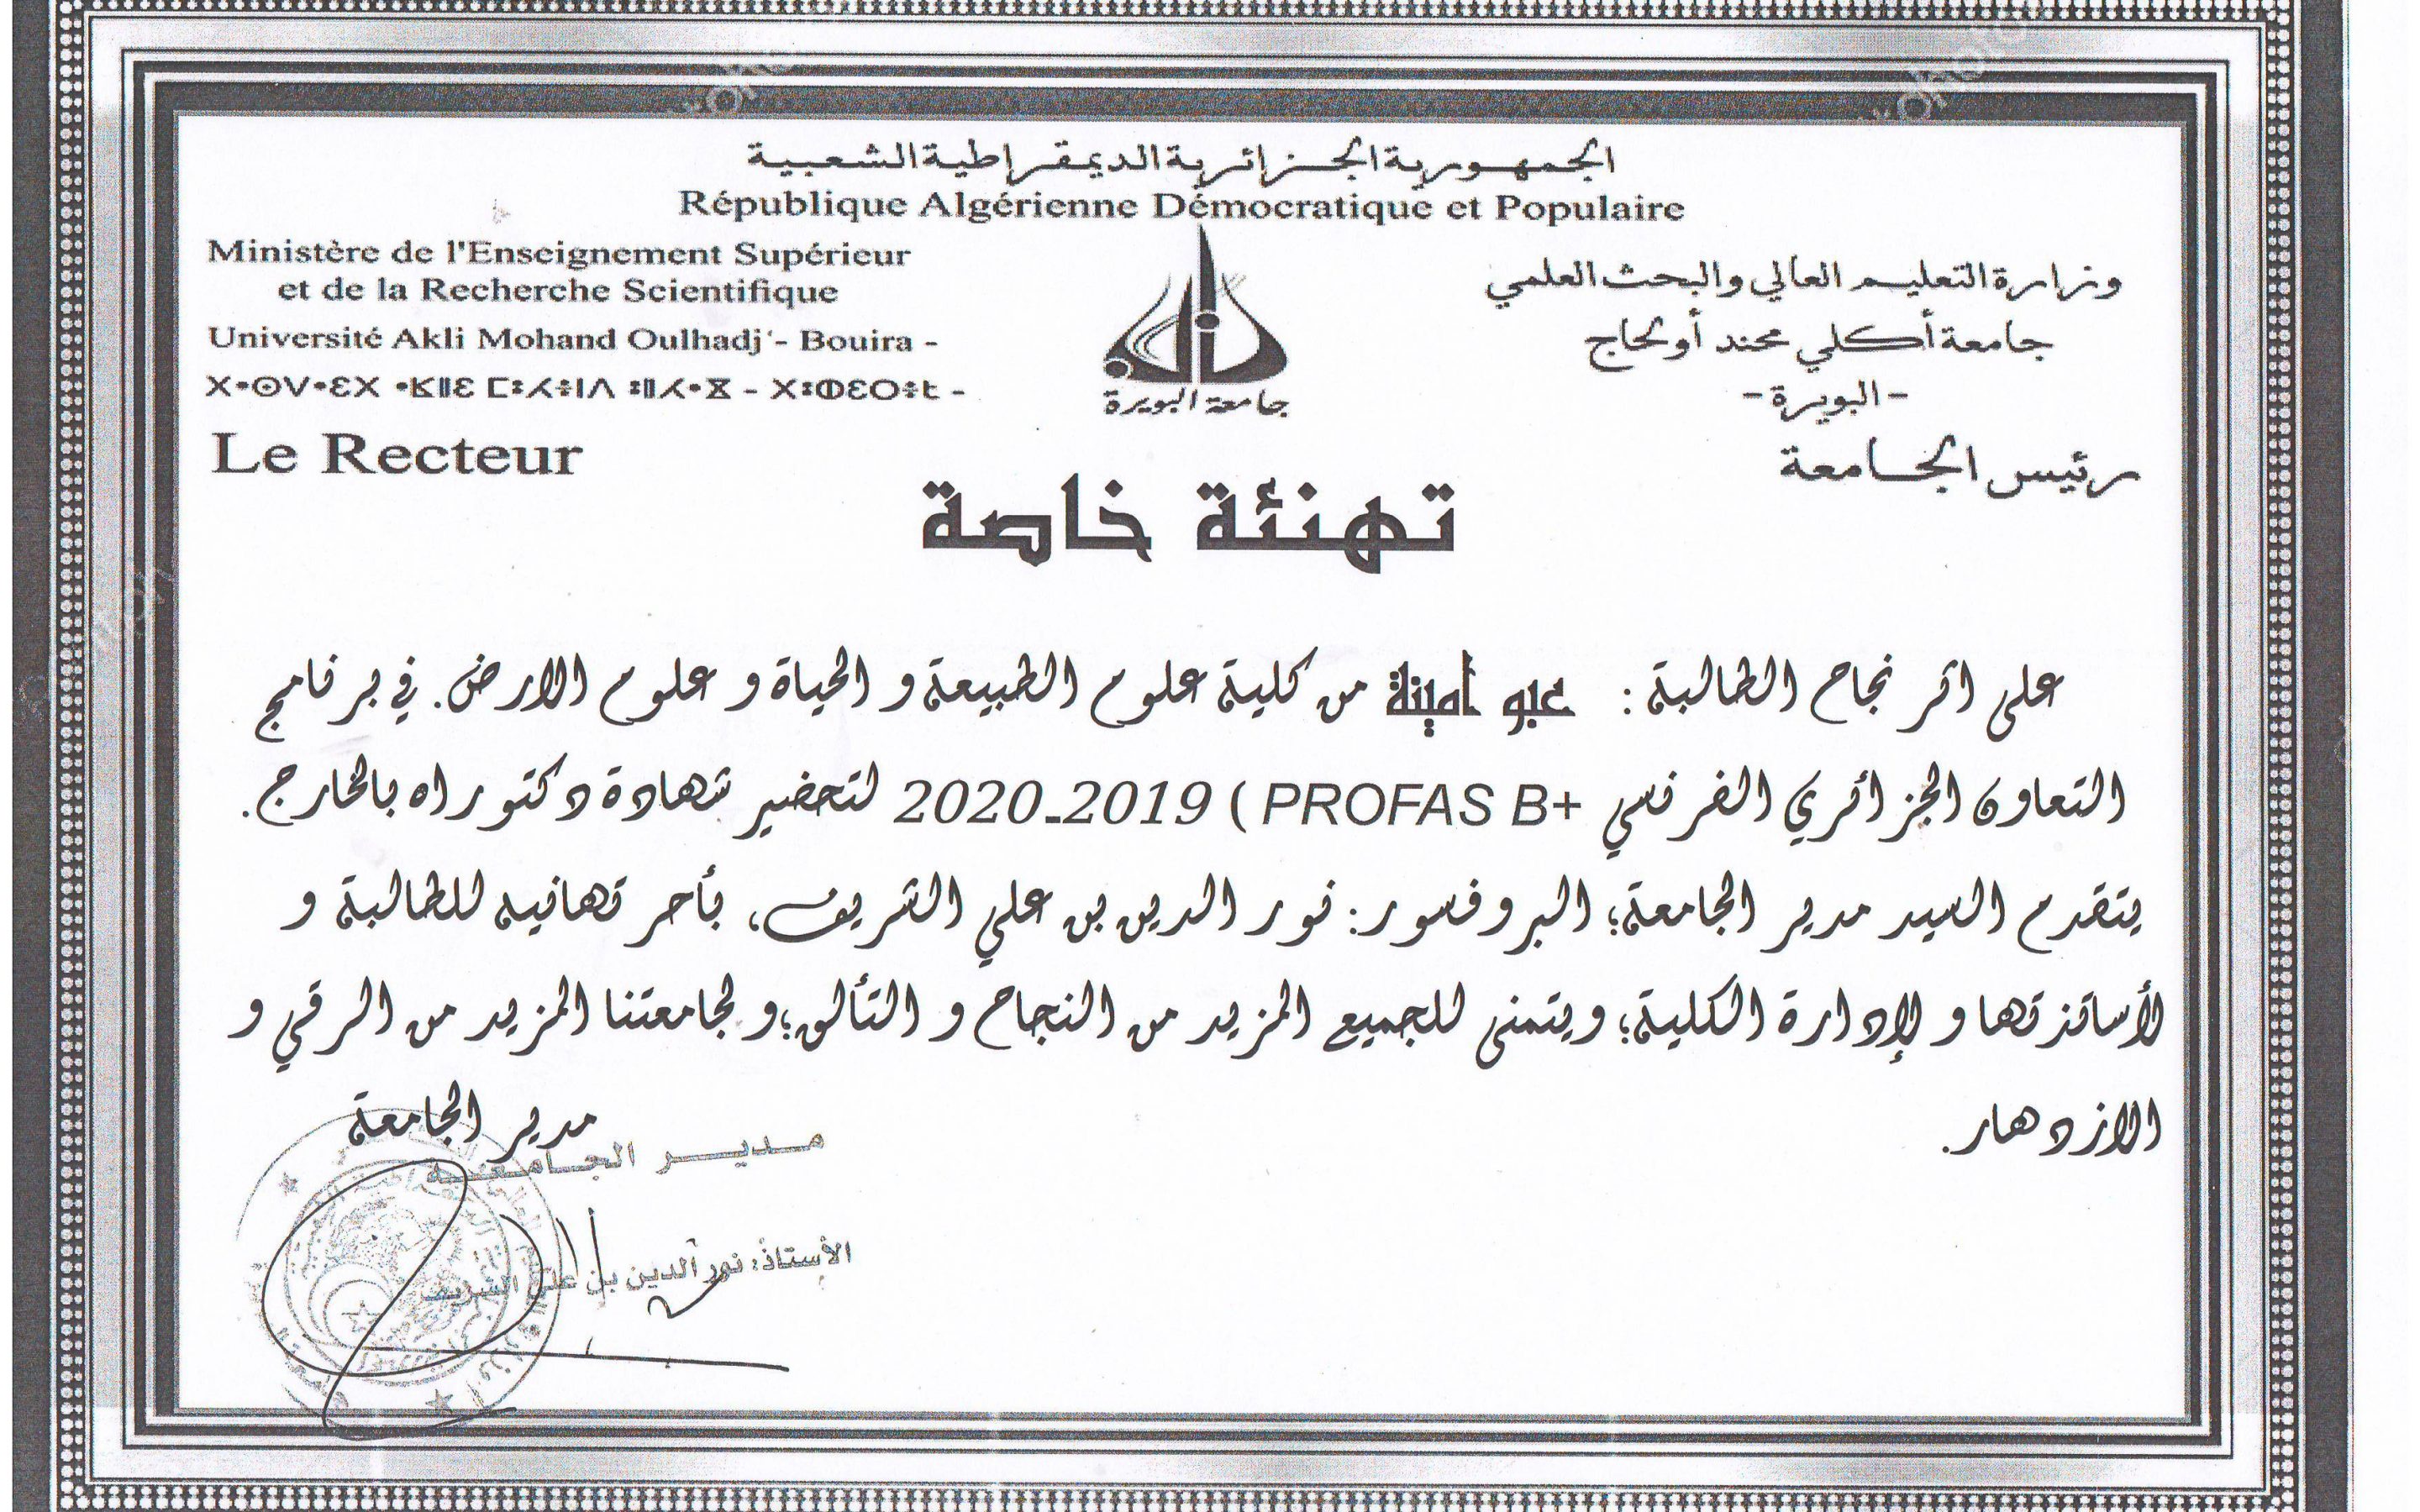 الجمهورية الجزائرية الديمقراطية الشعبية
République Algérienne Démocratique et Populaire
Ministère de l'Enseignement Supérieur
et de la Recherche Scientifique
Université Akli Mohand Oulhadj - Bouira -
ⵝ•ⵙⴸ•ⵉⵝ •ⴽⵍⵉ ⵎⵓⵃⵏⴷ ⵓⵍⵃ•ⴵ - ⵝⵓⴱⵉⵔⵜ -
Le Recteur
وزارة التعليم العالي والبحث العلمي
جامعة أكلي محند أولحاج
-البويرة-
رئيس الجامعة
جامعة البويرة
تهنئة خاصة
على اثر نجاح الطالبة : عبو أمينة من كلية علوم الطبيعة و الحياة و علوم الارض. في برنامج
التعاون الجزائري الفرنسي PROFAS B+ ) 2019-2020 لتحضير شهادة دكتوراه بالخارج.
يتقدم السيد مدير الجامعة؛ البروفسور: نور الدين بن علي الشريف، بأحر تهانيه للطالبة و
لأساتذتها و لإدارة الكلية؛ ويتمنى للجميع المزيد من النجاح و التألق؛و لجامعتنا المزيد من الرقي و
الازدهار.
مدير الجامعة
مديـر الجـامعـة
الأستاذ: نور الدين بن علي الشريف